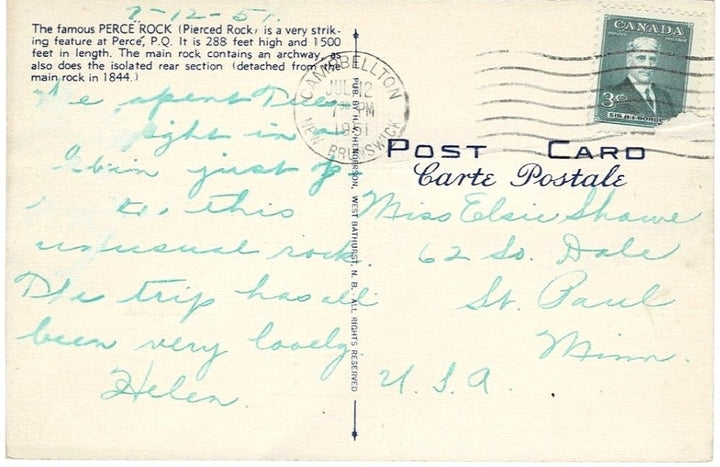 7-12-51.
The famous PERCE ROCK (Pierced Rock) is a very strik-
ing feature at Perce, P.Q. It is 288 feet high and 1500
feet in length. The main rock contains an archway, as
also does the isolated rear section (detached from the
main rock in 1844.)
We spent Tues
night in a
Cabin just
to, this
unusual rock.
The trip has all
been very lovely.
Helen.
PUB. BY H. V. HENDERSON, WEST BATHURST, N. B. - ALL RIGHTS RESERVED
CAMPBELLTON
JUL 12
PM
1951
NEW BRUNSWICK
CANADA
3¢
SIR R·L·BORDEN
POST CARD
Carte Postale
Miss Elsie Shawe
62 So. Dale
St. Paul
Minn.
U.S.A.